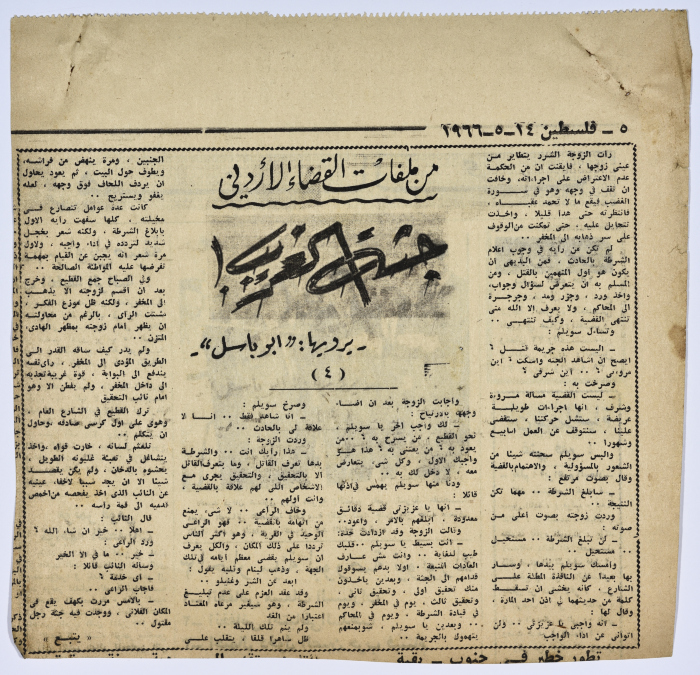 ٥ - فلسطين ٢٤-٥-١٩٦٦
من ملفات القضاء الأردني
جثة الغريب!
- يرويها: "ابو باسل" -
( ٤ )
رأت الزوجة الشرر يتطاير من
عيني زوجها، فأيقنت ان من الحكمة
عدم الاعتراض على اجراءاته، وخافت
ان تقف في وجهه وهو في سورة
الغضب فيقع ما لا تحمد عقباه.
فانتظرته حتى هدأ قليلا، واخذت
تتحايل عليه، حتى تمكنت من الوقوف
على سر ذهابه الى المخفر ..
لم تكن من رأيه في وجوب اعلام
الشرطة بالحادث، فمن البديهي ان
يكون هو اول المتهمين بالقتل، ومن
المسلم به ان يتعرض لسؤال وجواب،
واخذ ورد، وجزر ومد، وجرجرة
الى المحاكم، ولا يعرف الا الله متى
تنتهي القضية، وكيف تنتهي ..
وتساءل سويلم :
- اليست هذه جريمة قتل ؟
ايصح ان اشاهد الجثة واسكت ؟ اين
مروءتي ؟ .. اين شرفي ؟
وصرخت به :
- ليست القضية مسألة مروءة
وشرف، انها اجراءات طويلة
عريضة، ستشل حركتنا، ستقضي
علينا، سنتوقف عن العمل اسابيع
وشهورا ..
والبس سويلم سحنته شيئا من
الشعور بالمسؤولية، والاهتمام بالقضية
وقال بصوت مرتفع :
- سابلغ الشرطة .. مهما تكن
النتيجة ..
وردت زوجته بصوت أعلى من
صوته :
- لن تبلغ الشرطة .. مستحيل
.. مستحيل ..
وامسك سويلم بيدها، وسار
بها بعيدا عن النافذة المطلة على
الشارع، كأنه يخشى ان تسقط
كلمة من حديثهما في اذن احد المارة.
وقال لها :
- انه واجبي يا عزيزتي .. ولن
اتوانى عن اداء الواجب
واجابت الزوجة بعد ان اضاء
وجهه بالارتياح :
- لك واجب الحق يا سويلم
نحو القطيع، من يسرح به ؟ .. من
يعود به ؟ من يعتني به ؟ هذا هو
واجبك الاول، وكل شيء يتعارض
معه، لا دخل لك به ..
ودنا منها سويلم يهمس في اذنها
قائلا :
- انها يا عزيزتي قضية دقائق
معدودة .. ابلغهم بالامر، واعود ..
وقالت الزوجة وقد ازدادت حدة:
- انت بسيط يا سويلم .. قلبك
طيب للغاية .. وانت مش عارف
العادات المتبعة. اولا بدهم يسوقوك
قدامهم الى الجثة، وبعدين ياخذون
منك تحقيق اولي، وتحقيق ثاني،
وتحقيق ثالث، يوم في المخفر، ويوم
في قيادة الشرطة، ويوم في المحاكم
.. وبعدين يا سويلم، شويمنعهم
يتهموك بالجريمة ..
وصرخ سويلم :
- انا شاهد فقط .. انا لا
علاقة لي بالحادث ..
وردت الزوجة :
- هذا رأيك انت .. والشرطة
بدها تعرف القاتل، وما بتعرف القاتل
الا بالتحقيق، والتحقيق يجري مع
الاشخاص اللي لهم علاقة بالقضية،
وانت اولهم ..
وخاف الراعي .. لا شيء يمنع
من اتهامه بالقضية .. فهو الراعي
الوحيد في القرية، وهو اكثر الناس
ترددا على ذلك المكان، والكل يعرف
ان سويلم يقضي معظم ايامه في تلك
الجهة. وذهب لينام وقلبه يقول :
ابعد عن الشر وغنيلو ..
وقد عقد العزم على عدم تبليغ
الشرطة، وهو صيقير مرعاه المعتاد
اعتبارا من الغد
ولم ينم تلك الليلة ..
ظل ساهرا قلقا، يتقلب على
الجنبين، ومرة ينهض من فراشه،
ويطوف حول البيت، ثم يعود يحاول
ان يردف اللحاف فوق وجهه، لعله
يغفو ويستريح.
كانت عدة عوامل تتصارع في
مخيلته، كلها سفهت رأيه الاول
بابلاغ الشرطة، ولكنه شعر بخجل
شديد لتردده في اداء واجبه، ولاول
مرة شعر انه يجبن عن القيام بمهمة
تفرضها عليه المواطنة الصالحة ..
ولى الصباح جمع القطيع، وخرج
بعد ان اقسم لزوجته الا يذهب
الى المخفر، ولكنه ظل موزع الفكر،
مشتت الرأي، بالرغم من محاولته
ان يظهر امام زوجته بمظهر الهادىء
المتزن ..
ولم يدر كيف ساقه القدر الى
الطريق المؤدي الى المخفر، رأى نفسه
يندفع الى البوابة، قوة غريبة تجذبه
الى داخل المخفر، ولم يفطن الا وهو
امام نائب التحقيق
ترك القطيع في الشارع العام،
وهوى على اول كرسي صادفه، وحاول
ان يتكلم ..
تلعثم لسانه، خارت قواه، واخذ
يتشاغل في تعبئة غليونه الطويل،
يحشوه بالدخان، ولم يكن يقصد
شيئا الا ان يجد سبيلا لاخفاء عينيه
عن النائب الذي اخذ يفحصه من اخمص
قدميه الى قمة رأسه ..
قال النائب :
- اهلا .. خير ان شاء الله ؟
ورد الراعي :
- خير .. ما في الا الخير
وسأله النائب قائلا :
- اي خدمة ؟
فاجاب الراعي ..
- بالامس مررت بكهف يقع في
المكان الفلاني، ووجدت فيه جثة رجل
مقتول ..
« يتبع »
تطور خطير في جنوب - بقية